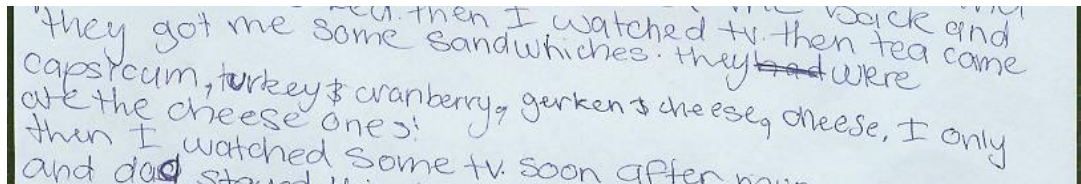 then I watched tv. then tea came back and
they got me some sandwhiches. they were
capsicum, turkey & cranberry, gerken & cheese, cheese, I only
ate the cheese ones!
then I watched some tv. soon after
and dad